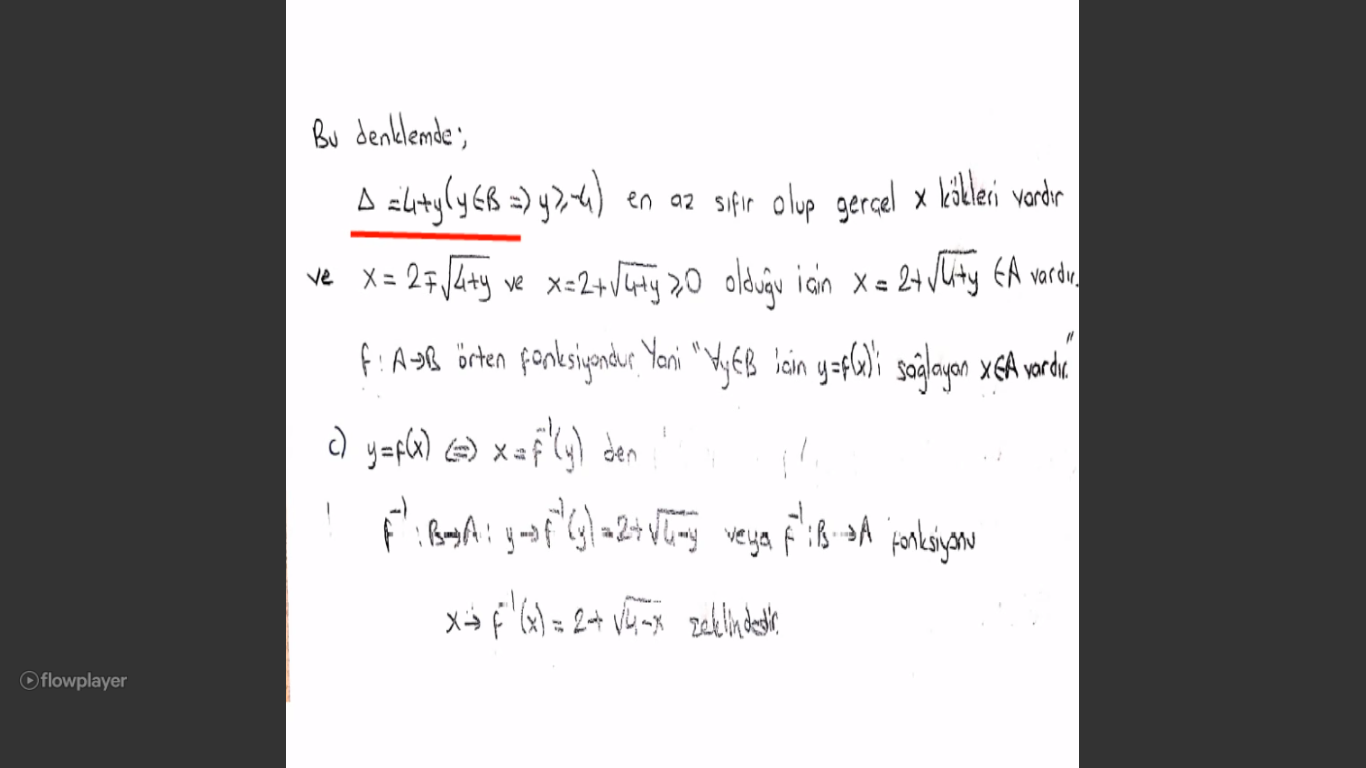 Bu denklemde;
Δ = 4+y (y∈B ⇒ y ≥ -4) en az sıfır olup gerçel x kökleri vardır
ve x = 2∓√4+y ve x=2+√4+y ≥0 olduğu için x = 2+√4+y ∈A vardır.
f : A→B örten fonksiyondur. Yani "∀y∈B için y=f(x)'i sağlayan x∈A vardır."
c) y=f(x) ⇔ x = f⁻¹(y) den
f⁻¹ : B→A : y→f⁻¹(y) = 2+√4-y veya f⁻¹ : B→A fonksiyonu
x→ f⁻¹(x) = 2+ √4-x şeklindedir.
flowplayer